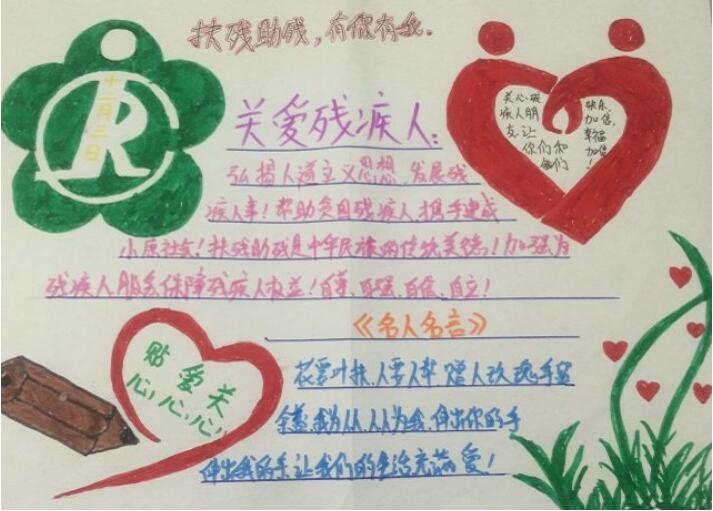 扶残助残,有你有我.
十二月三日
R
关爱残疾人:
关心残
疾人朋
友,让
你们和
我们
快乐
加倍,
幸福
加倍!
弘扬人道主义思想,发展残
疾人事!帮助贫困残疾人,携手建成
小康社会!扶残助残是中华民族的传统美德!加强为
残疾人服务保障残疾人权益!自尊、自强、自信、自立!
《名人名言》
贴 爱 关
心,心,心,
花要叶扶,人要人帮,赠人玫瑰手留
余香,我为人人,人人为我,伸出你的手
伸出我的手,让我们的生活充满爱!